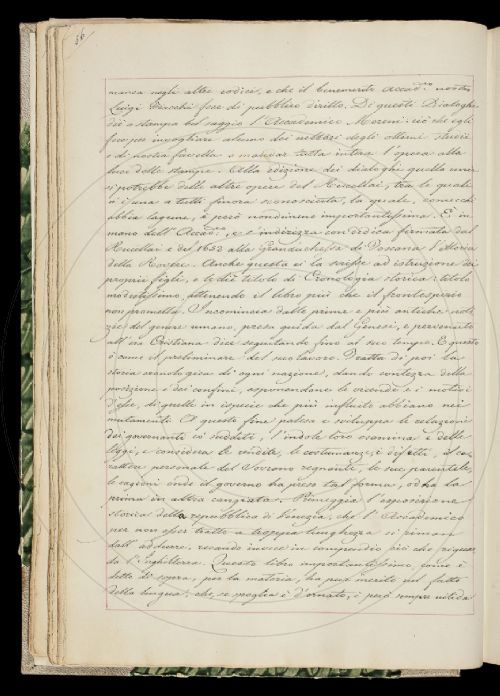 56
manca negli altri codici, e che il benemerito Accad.co nostro
Luigi fece di pubblico diritto. Di questi Dialoghi
diè a stampa bel saggio l'Accademico Moreni: ciò che egli
fece per invogliare alcuno dei nobili degli ottimi studii
e di nostra favella a mandar tutta intera l'opera alla
luce delle stampe. Alla edizione dei dialoghi quella unir
si potrebbe delle altre opere del Rucellai, tra le quali
v'è una a tutti finora sconosciuta, la quale, comecchè
abbia lacune, è però nondimeno importantissima. È in
mano dell'Accad.co, e s'indirizza con dedica firmata dal
Rucellai e del 1652 alla Granduchessa di Toscana
della Rovere. Anche questa ei la scrisse ad istruzione dei
proprii figli, e le diè titolo di Cronologia storica: titolo
modestissimo attenendo il libro più che il frontespizio
non prometta. Incomincia dalle prime e più antiche noti
zie del genere umano, presa guida dal Genesi, e pervenuto
all'era Cristiana dice seguitando fino al suo tempo. E questo
è come il preliminare del suo lavoro. Tratta di poi la
storia cronologica di ogni nazione, dando contezza della
posizione e dei confini, esponendone le vicende e i motivi
d'esse, di quelle in ispecie che più influito abbiano nei
mutamenti. A questo fine palesa e sviluppa le relazioni
dei governanti coi sudditi, l'indole loro esamina e delle
leggi, e considera le vendite, le costumanze, i difetti, il ca
rattere personale del Sovrano regnante, le sue parentele,
le cagioni onde il governo ha preso tal forma, od ha la
prima in altra cangiata. Primeggia l'esposizione
storica della repubblica di Venezia, che l'Accademico
per non esser tratto a troppa lunghezza si rimane
dall'addurre, recando invece in compendio ciò che riguar
da l'Inghilterra. Questo libro importantissimo, come è
detto di sopra, per la materia, ha pur merito pel fatto
della lingua, che, se spoglia è d'ornato, è però sempre nitida